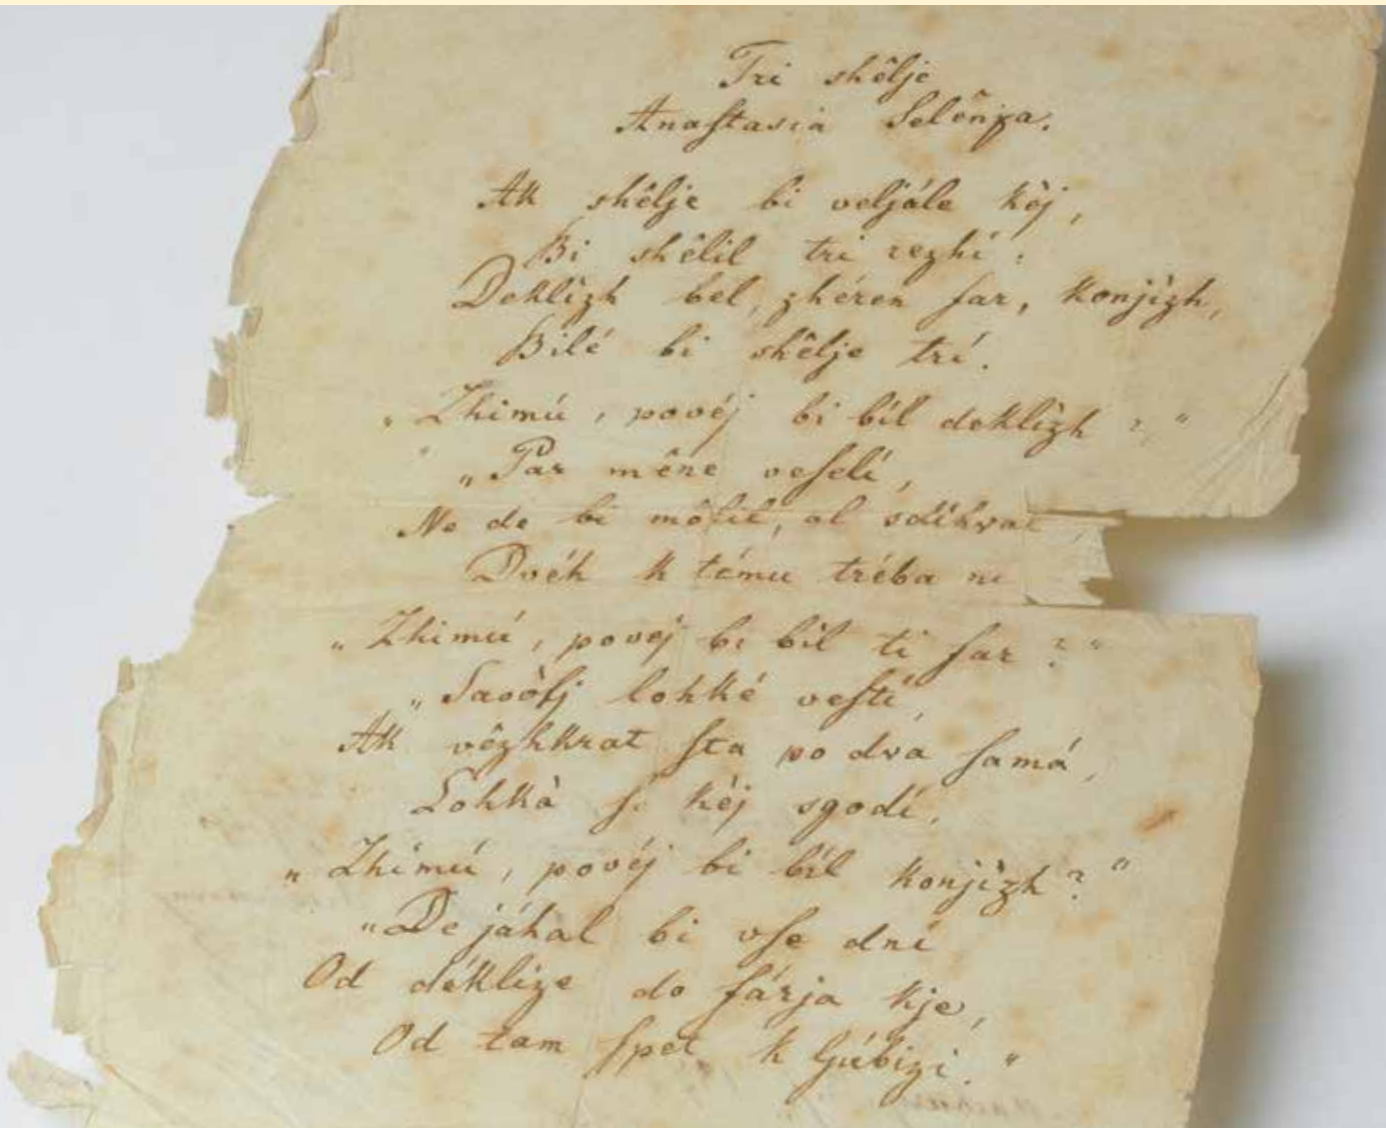 Tri shêlje
Anaſtasia Selênza.
Ak shêlje bi veljále kèj,
Bi shêlil tri rezhí:
Deklìzh bel, zhéren far, konjìzh,
Bilé bi shêlje trí.
„Zhimú, povéj bi bíl deklìzh?“
„Par mêne veſelí,
Ne de bi môlil, al sdíhval,
Dvéh k tému tréba ni
„Zhimú, povéj bi bíl ti far?“
„Savòlj lohké veſtí,
Ak vêzhkrat ſta po dva ſamá,
Lohkà ſe kèj sgodí.
„Zhimú, povéj bi bíl konjìzh?“
„De jáhal bi vſe dní
Od déklize do fárja kje,
Od tam ſpet k ljúbizi.“